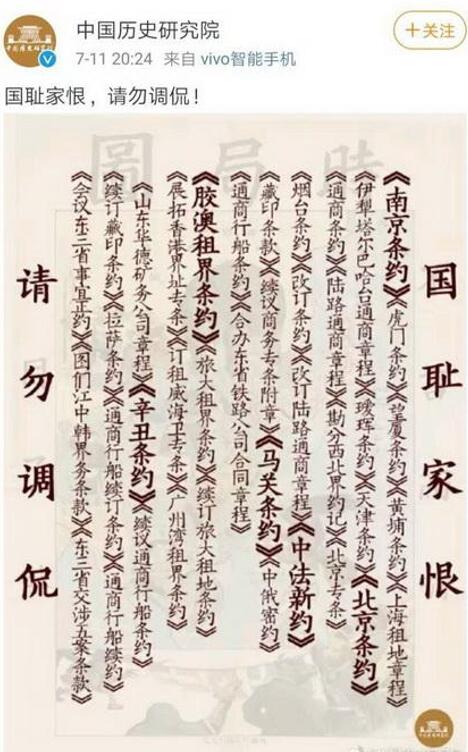 中国历史研究院
+关注
7-11 20:24 来自 vivo智能手机
国耻家恨，请勿调侃！
圖局時
国耻家恨
《南京条约》《虎门条约》《望厦条约》《黄埔条约》《上海租地章程》
《伊犁塔尔巴哈台通商章程》《瑷珲条约》《天津条约》《北京条约》
《通商条约》《陆路通商章程》《勘分西北界约记》《北京专条》
《烟台条约》《改订条约》《改订陆路通商章程》《中法新约》
《藏印条款》《续议商务专条附章》《马关条约》《中俄密约》
《通商行船条约》《合办东省铁路公司合同章程》
《胶澳租界条约》《旅大租界条约》《续订旅大租地条约》
《展拓香港界址专条》《订租威海卫专条》《广州湾租界条约》
《山东华德矿务公司章程》《辛丑条约》《续议通商行船条约》
《续订藏印条约》《拉萨条约》《通商行船续订条约》《通商行船续约》
《会议东三省事宜正约》《图们江中韩界务条款》《东三省交涉五案条款》
请勿调侃